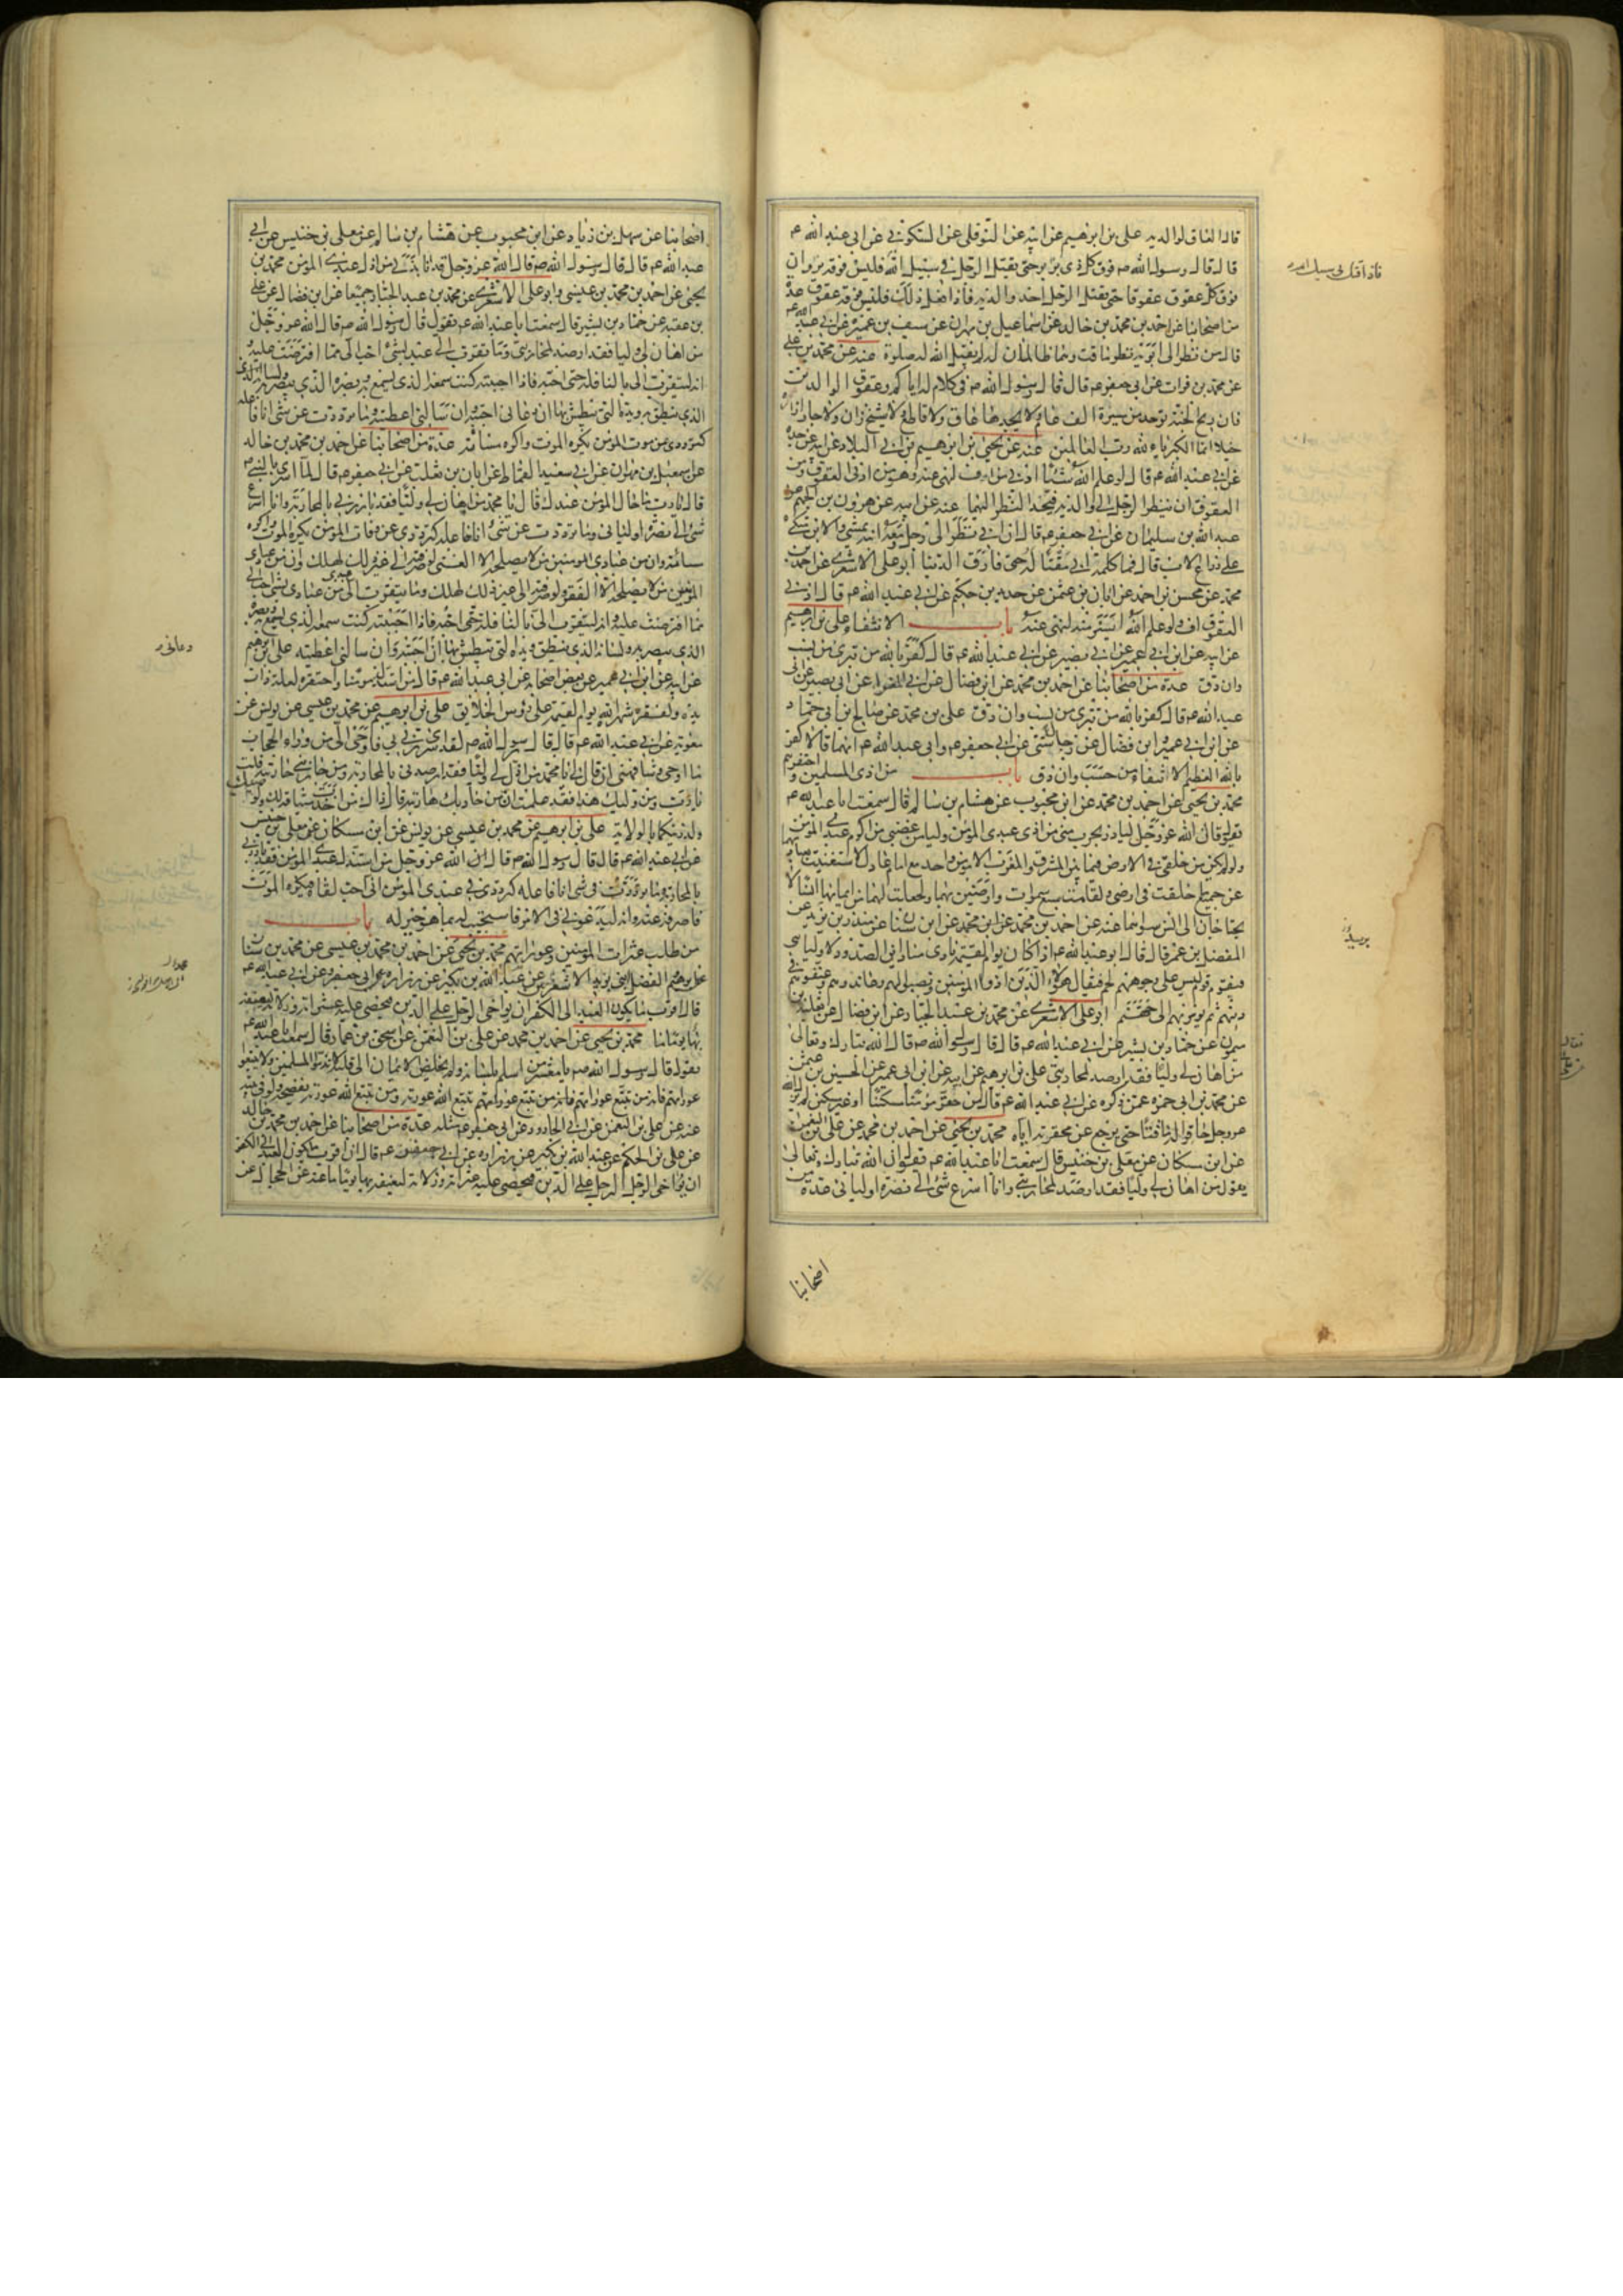 قال العاق لوالديه علي بن ابرهيم عن ابيه عن النوفلي عن السكوني عن ابي عبد الله ع
قال قال رسول الله ص فوق كل ذي بر بر حتى يقتل الرجل في سبيل الله فليس فوقه بر وان
فوق كل عقوق عقوقا حتى يقتل الرجل احد والديه فاذا فعل ذلك فليس فوقه عقوق عدة
من اصحابنا عن احمد بن محمد بن خالد عن اسماعيل بن مهران عن سيف بن عميرة عن ابي عبد الله ع
قال من نظر الى ابويه نظر ماقت وهما ظالمان له لم يقبل الله له صلوة عنه عن محمد بن علي
عن محمد بن فرات عن ابي جعفر ع قال قال رسول الله ص في كلام له اياكم وعقوق الوالدين
فان ريح الجنة توجد من مسيرة الف عام ولا يجدها عاق ولا قاطع ولا شيخ زان ولا جار ازاره
خيلا انما الكبرياء لله رب العالمين عنه عن يحيى بن ابرهيم بن ابي البلاد عن ابيه عن جده
عن ابي عبد الله ع قال لو علم الله شيئا ادنى من اف لنهى عنه وهو من ادنى العقوق ومن
العقوق ان ينظر الرجل الى والديه فيحد النظر اليهما عنه عن ابيه عن هرون بن الجهم عن
عبد الله بن سليمان عن ابي جعفر ع قال ان ابي نظر الى رجل ومعه ابنه يمشي والابن متكئ
على ذراع الاب قال فما كلمه ابي مقتا له حتى فارق الدنيا ابو علي الاشعري عن احمد بن
محمد عن محسن بن احمد عن ابان بن عثمن عن حديد بن حكيم عن ابي عبد الله ع قال ادنى
العقوق اف ولو علم الله ايسر منه لنهى عنه باب الانتفاء علي بن ابرهيم
عن ابيه عن ابن ابي عمير عن ابي بصير عن ابي عبد الله ع قال كفر بالله من تبرى من نسب
وان دق عدة من اصحابنا عن احمد بن محمد عن ابن فضال عن ابي المغرا عن ابي بصير عن ابي
عبد الله ع قال كفر بالله من تبرى من نسب وان دق علي بن محمد عن صالح بن ابي حماد
عن ابن ابي عمير وابن فضال عن رجال شتى عن ابي جعفر ع وابي عبد الله ع انهما قالا كفر
بالله العظيم الانتفاء من حسب وان دق باب من اذى المسلمين واحتقرهم
محمد بن يحيى عن احمد بن محمد عن ابن محبوب عن هشام بن سالم قال سمعت ابا عبد الله ع
يقول قال الله عز وجل لياذن بحرب مني من اذى عبدي المؤمن وليامن غضبي من اكرم عبدي المؤمن
ولو لم يكن من خلقي في الارض فيما بين المشرق والمغرب الا مؤمن واحد مع امام عادل لاستغنيت بعبادتهما
عن جميع ما خلقت في ارضي ولقامت سبع سموات وارضين بهما ولجعلت لهما من ايمانهما انسا لا
يحتاجان الى انس سواهما عنه عن احمد بن محمد عن ابن سنان عن منذر بن يزيد عن
المفضل بن عمر قال قال ابو عبد الله ع اذا كان يوم القيمة نادى مناد اين الصدود لاوليائي
فيقوم قوم ليس على وجوههم لحم فيقال هؤلاء الذين اذوا المؤمنين ونصبوا لهم وعاندوهم وعنفوهم في
دينهم ثم يؤمر بهم الى جهنم ابو علي الاشعري عن محمد بن عبد الجبار عن ابن فضال عن ثعلبة بن
ميمون عن حماد بن بشير عن ابي عبد الله ع قال قال رسول الله ص قال الله تبارك وتعالى
من اهان لي وليا فقد ارصد لمحاربتي علي بن ابرهيم عن ابيه عن ابن ابي عمير عن الحسين بن عثمن
عن محمد بن ابي حمزة عمن ذكره عن ابي عبد الله ع قال من حقر مؤمنا مسكينا او غير مسكين لم يزل الله
عز وجل حاقرا له ماقتا حتى يرجع عن محقرته اياه محمد بن يحيى عن احمد بن محمد عن علي بن النعمن
عن ابن مسكان عن معلى بن خنيس قال سمعت ابا عبد الله ع يقول ان الله تبارك وتعالى
يقول من اهان لي وليا فقد ارصد لمحاربتي وانا اسرع شئ الى نصرة اوليائي عدة من
اصحابنا
اصحابنا عن سهل بن زياد عن ابن محبوب عن هشام بن سالم عن معلى بن خنيس عن ابي
عبد الله ع قال قال رسول الله ص قال الله عز وجل قد نابذني من اذل عبدي المؤمن محمد بن
يحيى عن احمد بن محمد بن عيسى وابو علي الاشعري عن محمد بن عبد الجبار جميعا عن ابن فضال عن علي
بن عقبة عن حماد بن بشير قال سمعت ابا عبد الله ع يقول قال رسول الله ص قال الله عز وجل
من اهان لي وليا فقد ارصد لمحاربتي وما تقرب الي عبد بشئ احب الي مما افترضت عليه
انه ليتقرب الي بالنافلة حتى احبه فاذا احببته كنت سمعه الذي يسمع به وبصره الذي يبصر به ولسانه
الذي ينطق به ويده التي يبطش بها ان دعاني اجبته وان سالني اعطيته وما ترددت عن شئ انا فاعله
كترددي عن موت المؤمن يكره الموت واكره مسائته عدة من اصحابنا عن احمد بن محمد بن خالد
عن اسمعيل بن مهران عن ابي سعيد القماط عن ابان بن تغلب عن ابي جعفر ع قال لما اسري بالنبي ص
قال يا رب ما حال المؤمن عندك قال يا محمد من اهان لي وليا فقد بارزني بالمحاربة وانا اسرع
شئ الى نصرة اوليائي وما ترددت عن شئ انا فاعله كترددي عن وفات المؤمن يكره الموت واكره
مسائته وان من عبادي المؤمنين من لا يصلحه الا الغنى ولو صرفته الى غير ذلك لهلك وان من عبادي
المؤمنين من لا يصلحه الا الفقر ولو صرفته الى غير ذلك لهلك وما يتقرب الي عبد من عبادي بشئ احب الي
مما افترضت عليه وانه ليتقرب الي بالنافلة حتى احبه فاذا احببته كنت سمعه الذي يسمع به وبصره
الذي يبصر به ولسانه الذي ينطق به ويده التي يبطش بها ان دعاني اجبته وان سالني اعطيته علي بن ابرهيم
عن ابيه عن ابن ابي عمير عن بعض اصحابه عن ابي عبد الله ع قال من استذل مؤمنا واحتقره لقلة ذات
يده ولفقره شهره الله يوم القيمة على رؤس الخلائق علي بن ابرهيم عن محمد بن عيسى عن يونس عن
معوية عن ابي عبد الله ع قال قال رسول الله ص لقد اسرى ربي بي فاوحى الي من وراء الحجاب
ما اوحى وشافهني ان قال لي يا محمد من اذل لي وليا فقد ارصدني بالمحاربة ومن حاربني حاربته قلت
يا رب ومن وليك هذا فقد علمت ان من حاربك حاربته قال ذاك من اخذت ميثاقه لك ولوصيك
ولذريتكما بالولاية علي بن ابرهيم عن محمد بن عيسى عن يونس عن ابن مسكان عن معلى بن خنيس
عن ابي عبد الله ع قال قال رسول الله ص قال ان الله عز وجل من استذل عبدي المؤمن فقد بارزني
بالمحاربة وما ترددت في شئ انا فاعله كترددي في عبدي المؤمن اني احب لقاه فيكره الموت
فاصرفه عنه وانه ليدعوني في الامر فاستجيب له بما هو خير له باب
من طلب عثرات المؤمنين وعوراتهم محمد بن يحيى عن احمد بن محمد بن عيسى عن محمد بن سنان
عن ابرهيم والفضل ابني يزيد الاشعريين عن عبد الله بن بكير عن زرارة عن ابي جعفر وعن ابي عبد الله ع
قال اقرب ما يكون العبد الى الكفر ان يواخي الرجل على الدين فيحصي عليه عثراته وزلاته ليعنفه
بها يوما ما محمد بن يحيى عن احمد بن محمد عن علي بن النعمن عن اسحق بن عمار قال سمعت ابا عبد الله ع
يقول قال رسول الله ص يا معشر من اسلم بلسانه ولم يخلص الايمان الى قلبه لا تذموا المسلمين ولا تتبعوا
عوراتهم فانه من تتبع عوراتهم تتبع الله عورته ومن تتبع الله عورته يفضحه ولو في بيته
عنه عن علي بن النعمن عن ابي الجارود عن ابي جعفر ع مثله عدة من اصحابنا عن احمد بن محمد بن خالد
عن علي بن الحكم عن عبد الله بن بكير عن زرارة عن ابي جعفر ع قال ان اقرب ما يكون العبد الى الكفر
ان يواخي الرجل الرجل على الدين فيحصي عليه عثراته وزلاته ليعنفه بها يوما ما عنه عن الحجال عن